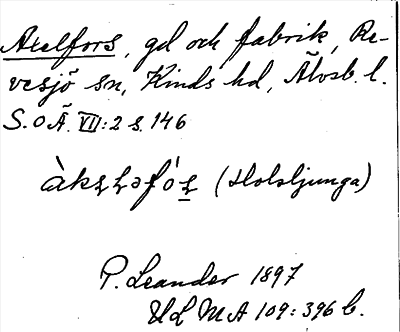 Axelfors, gd och fabrik, Re-
vesjö sn, Kinds hd, Älvsb. l.
S.O Ä. VII:2 s. 146
(Holsljunga)
P. Leander 1897
ULMA 109:396 b.